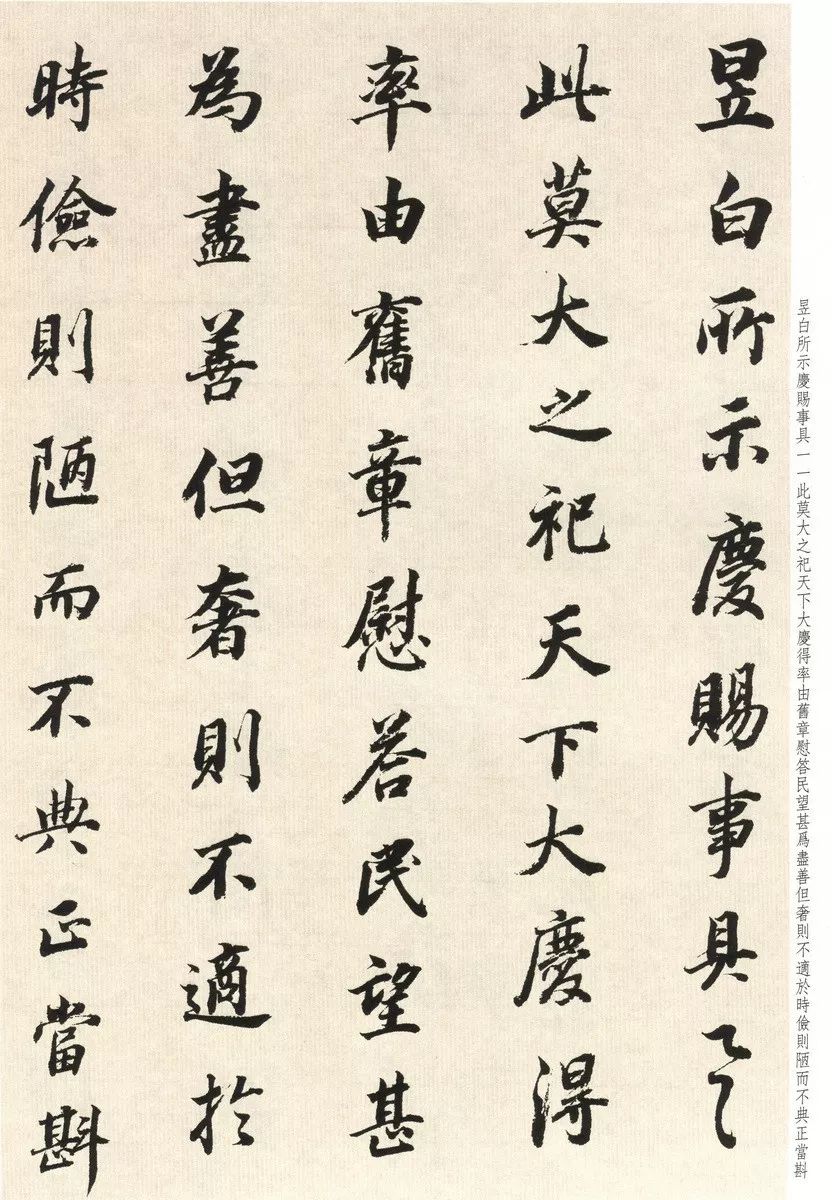 昱白所示慶賜事具〻〻
此莫大之祀天下大慶得
率由舊章慰荅民望甚
為盡善但奢則不適於
時儉則陋而不典正當斟
昱白所示慶賜事具一一此莫大之祀天下大慶得率由舊章慰答民望甚爲盡善但奢則不適於時儉則陋而不典正當斟